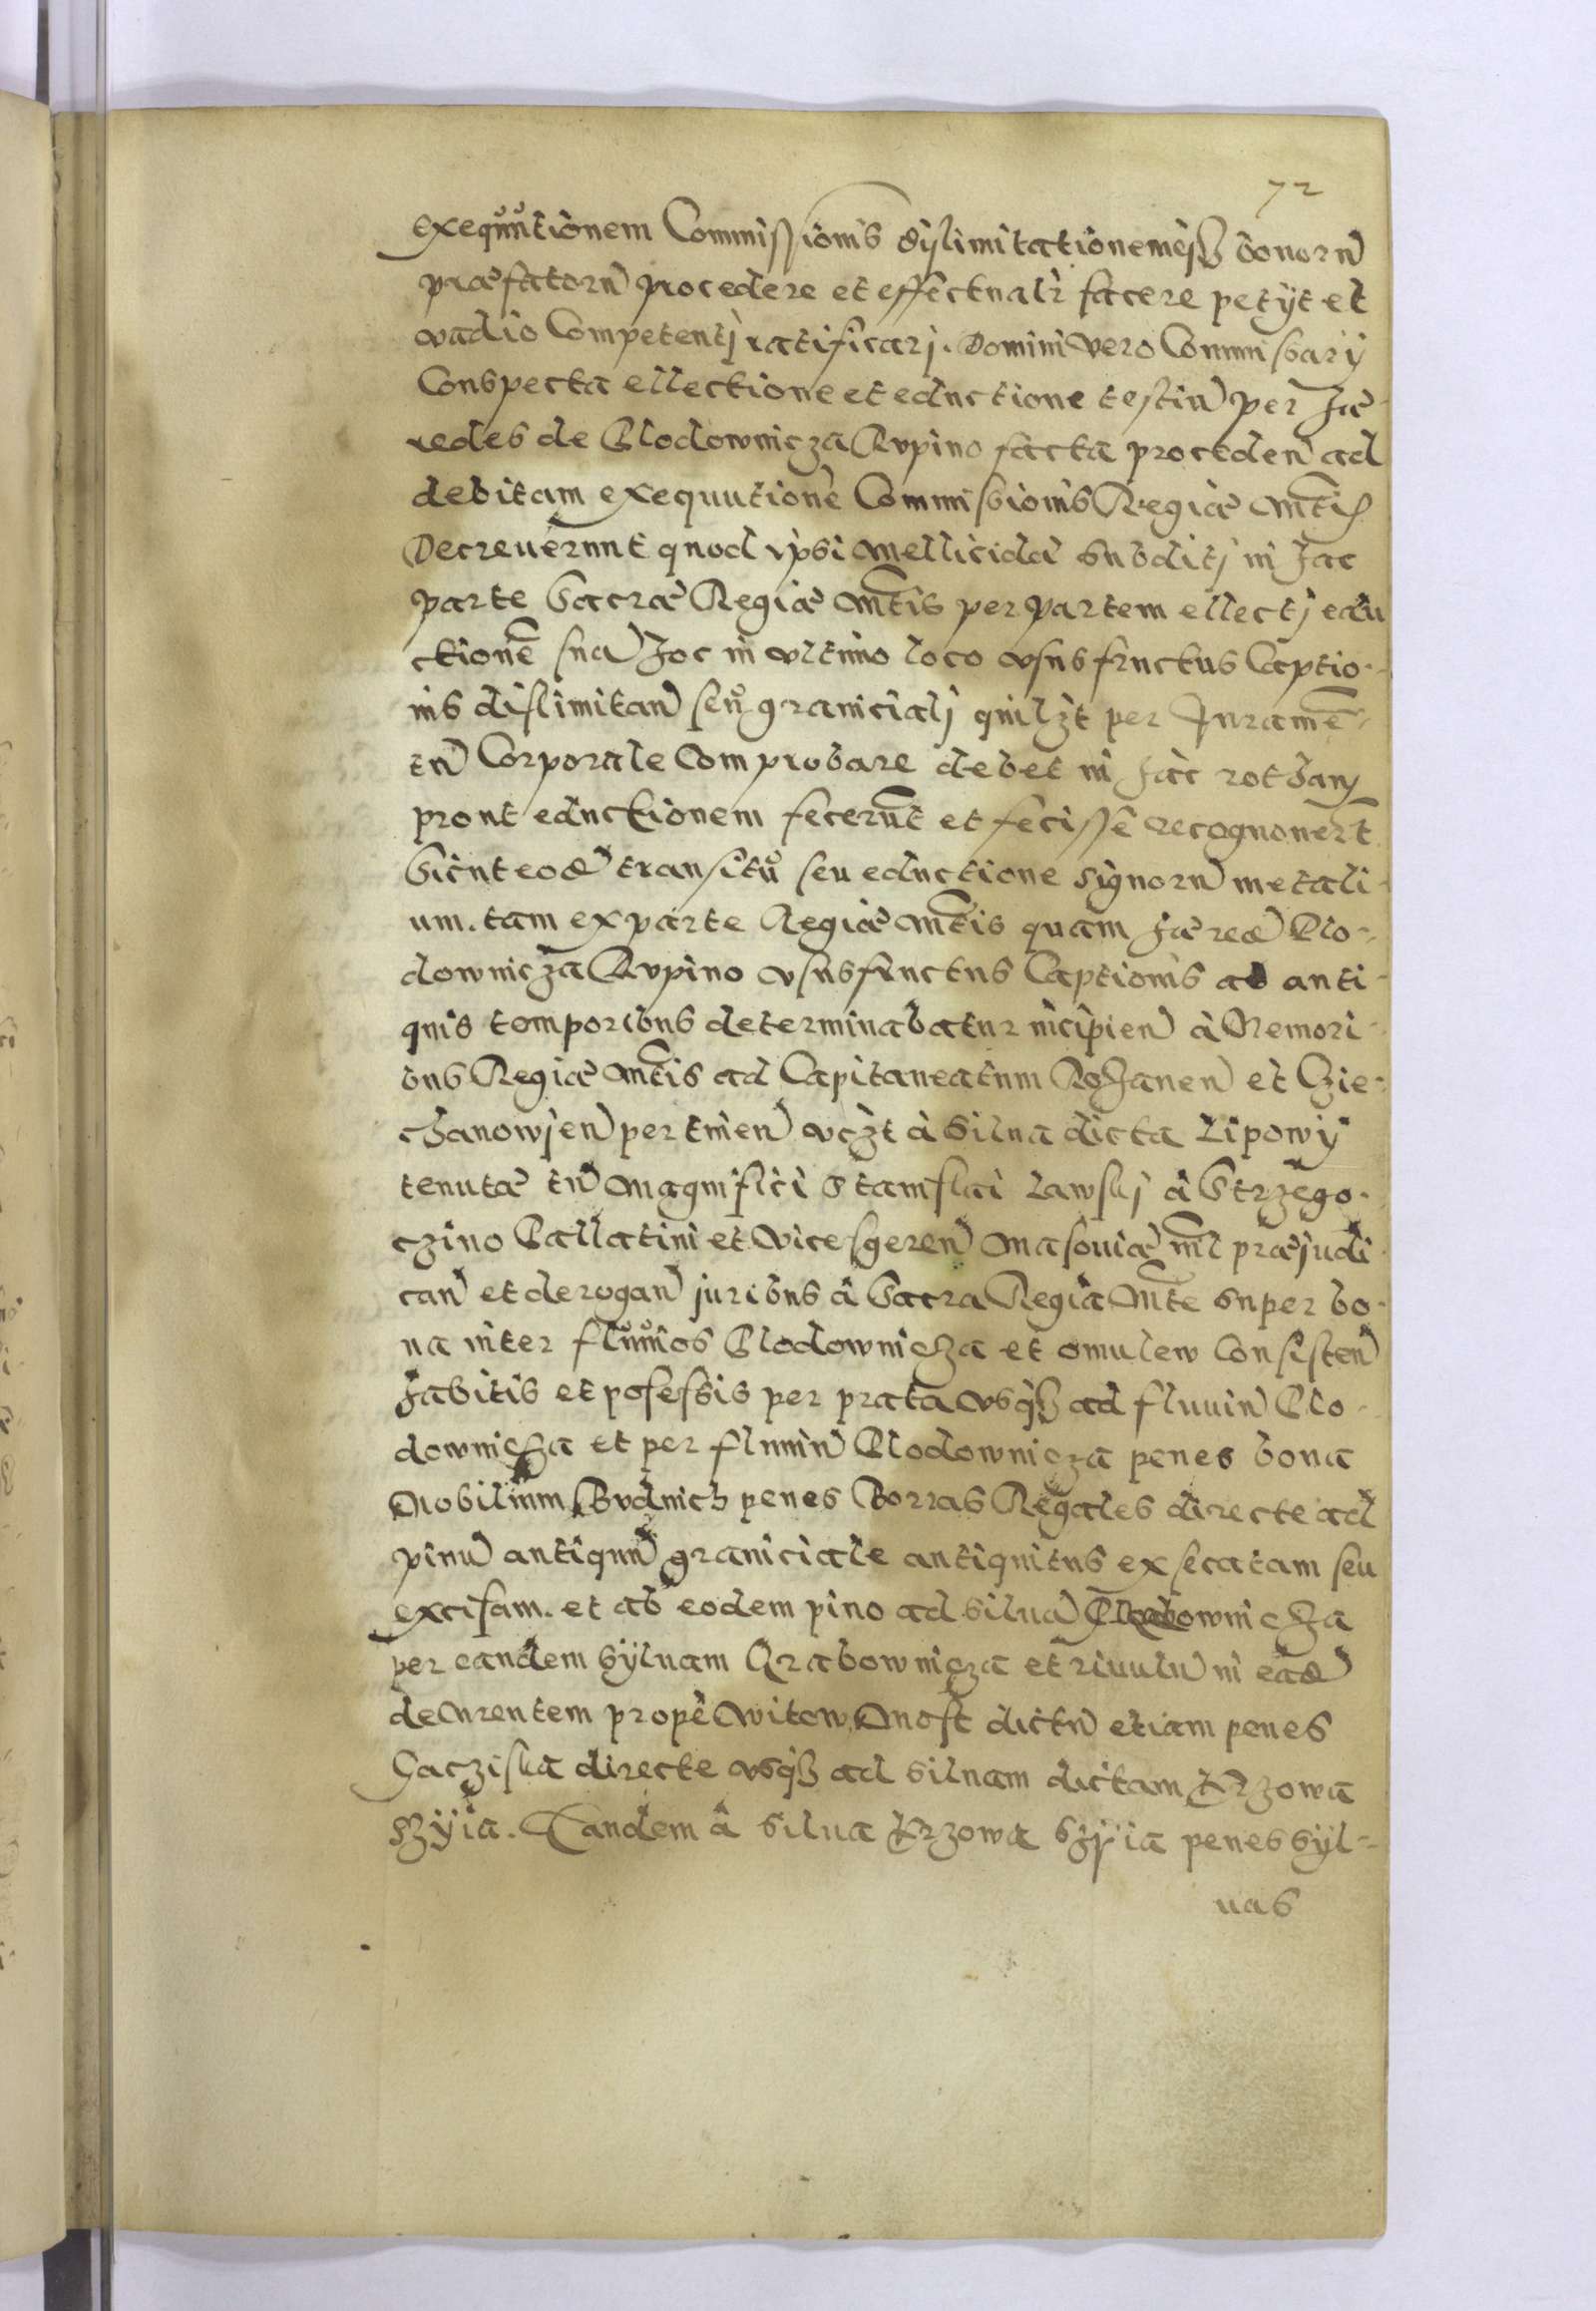 72
exequutionem Commissionis dislimitationemq̃ȝ bonorũ
præfatorũ procedere et effectualr̃ facere petÿt et
vadio Competentj ratificarj. Domini vero Commissarij
Conspecta ellectione et eductione testiũ per hæ-
redes de Plodownicza Rvpino facta proceden̄ ad
debitam exequutionẽ Commissionis Regiæ Mt̃is
Decreuerunt quod ipsi Mellicidæ subditj in hac
parte Sacræ Regiæ Mt̃is per partem ellectj edu
ctionẽ suã hoc in vltimo loco vsusfructus Captio-
nis dislimitan̄ seu graniciali quilȝt per Juramẽ-
tũ Corporale Comprobare debet in hac rotha
prout eductionem fecerũt et fecisse recognouer̃t
Sicut eodẽ transitu seu eductione signorũ metali-
um. tam ex parte Regiæ Mt̃is quam hæredũ Plo-
downicza Rvpino vsusfructus Captionis ab anti-
quis temporibus determinabatur incipien̄ à Nemori-
bus Regiæ Mt̃is ad Capitaneatum Rohanen̄ et Czie-
chanowien̄ pertinen̄ vcȝt à Silua dicta Lipowÿ
tenutæ tñ Magnifici Stanislai Lawskj â Strzego-
czino Pallatini et Vicesgeren̄ Masouiæ nl̃ præjudi
can̄ et derogan̄ juribus â Sacra Regia Mt̃e super bo-
na inter fluuios Plodownicza et Omulew Consisten̄
habitis et possessis per prata vsqȝ ad fluuiũ Plo-
downicza et per fluuiũ Plodownicza penes bona
Nobilium Budnich penes Borras Regales directe ad
pinũ antiquũ graniciale antiquitus exsecatam seu
excisam. et ab eodem pino ad siluã downicza
per eandem sÿluam Grabownicza et riuulũ in eadẽ
decurentem propè Witow Most dictũ etiam penes
Gacziska directe vsqȝ ad siluam dictam Krzowa
szÿia. Tandem â silua Krzowa szÿia penes sÿl-
uas